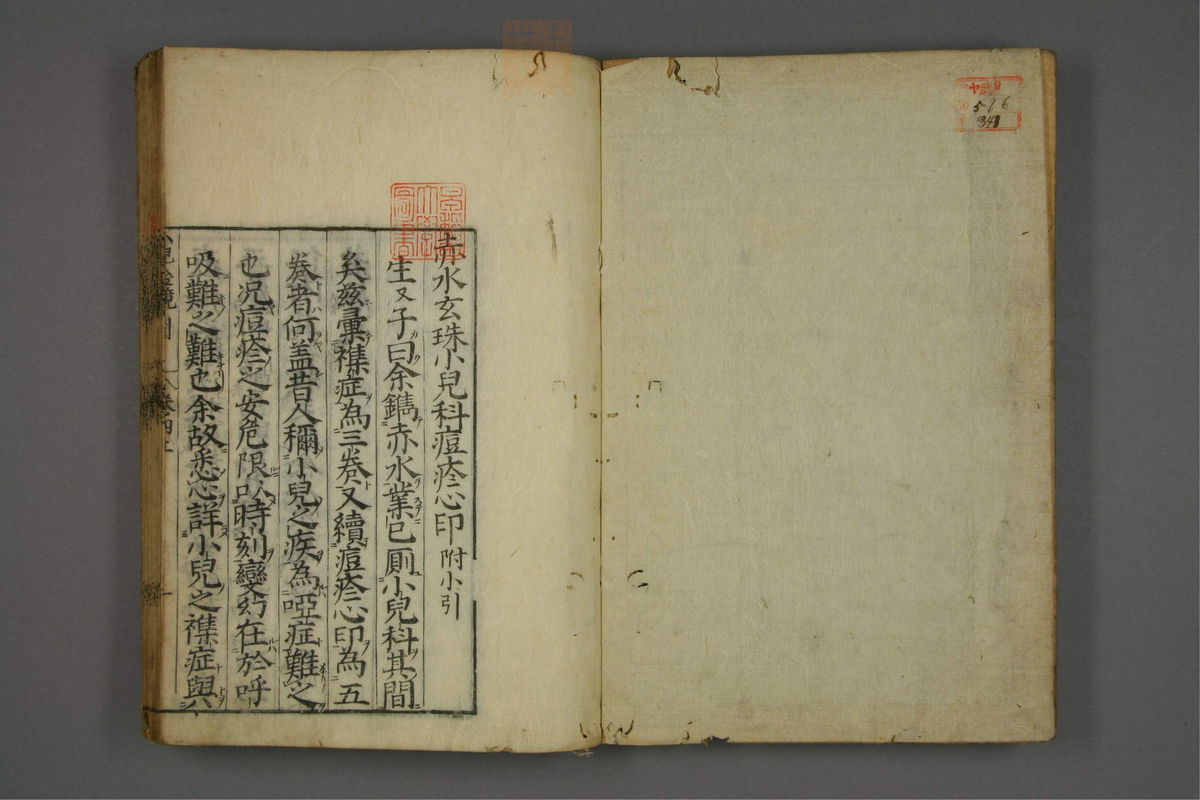 赤水玄珠小兒科痘疹心印 附小引
生生子曰余鐫赤水業已厠小兒科其間
矣茲彙襍症為三卷又續痘疹心印為五
卷者何盖昔人稱小兒之疾為啞症難之
也况痘疹之安危限以時刻變幻在於呼
吸難之難也余故悉心詳小兒之襍症與
卷四上
516
348